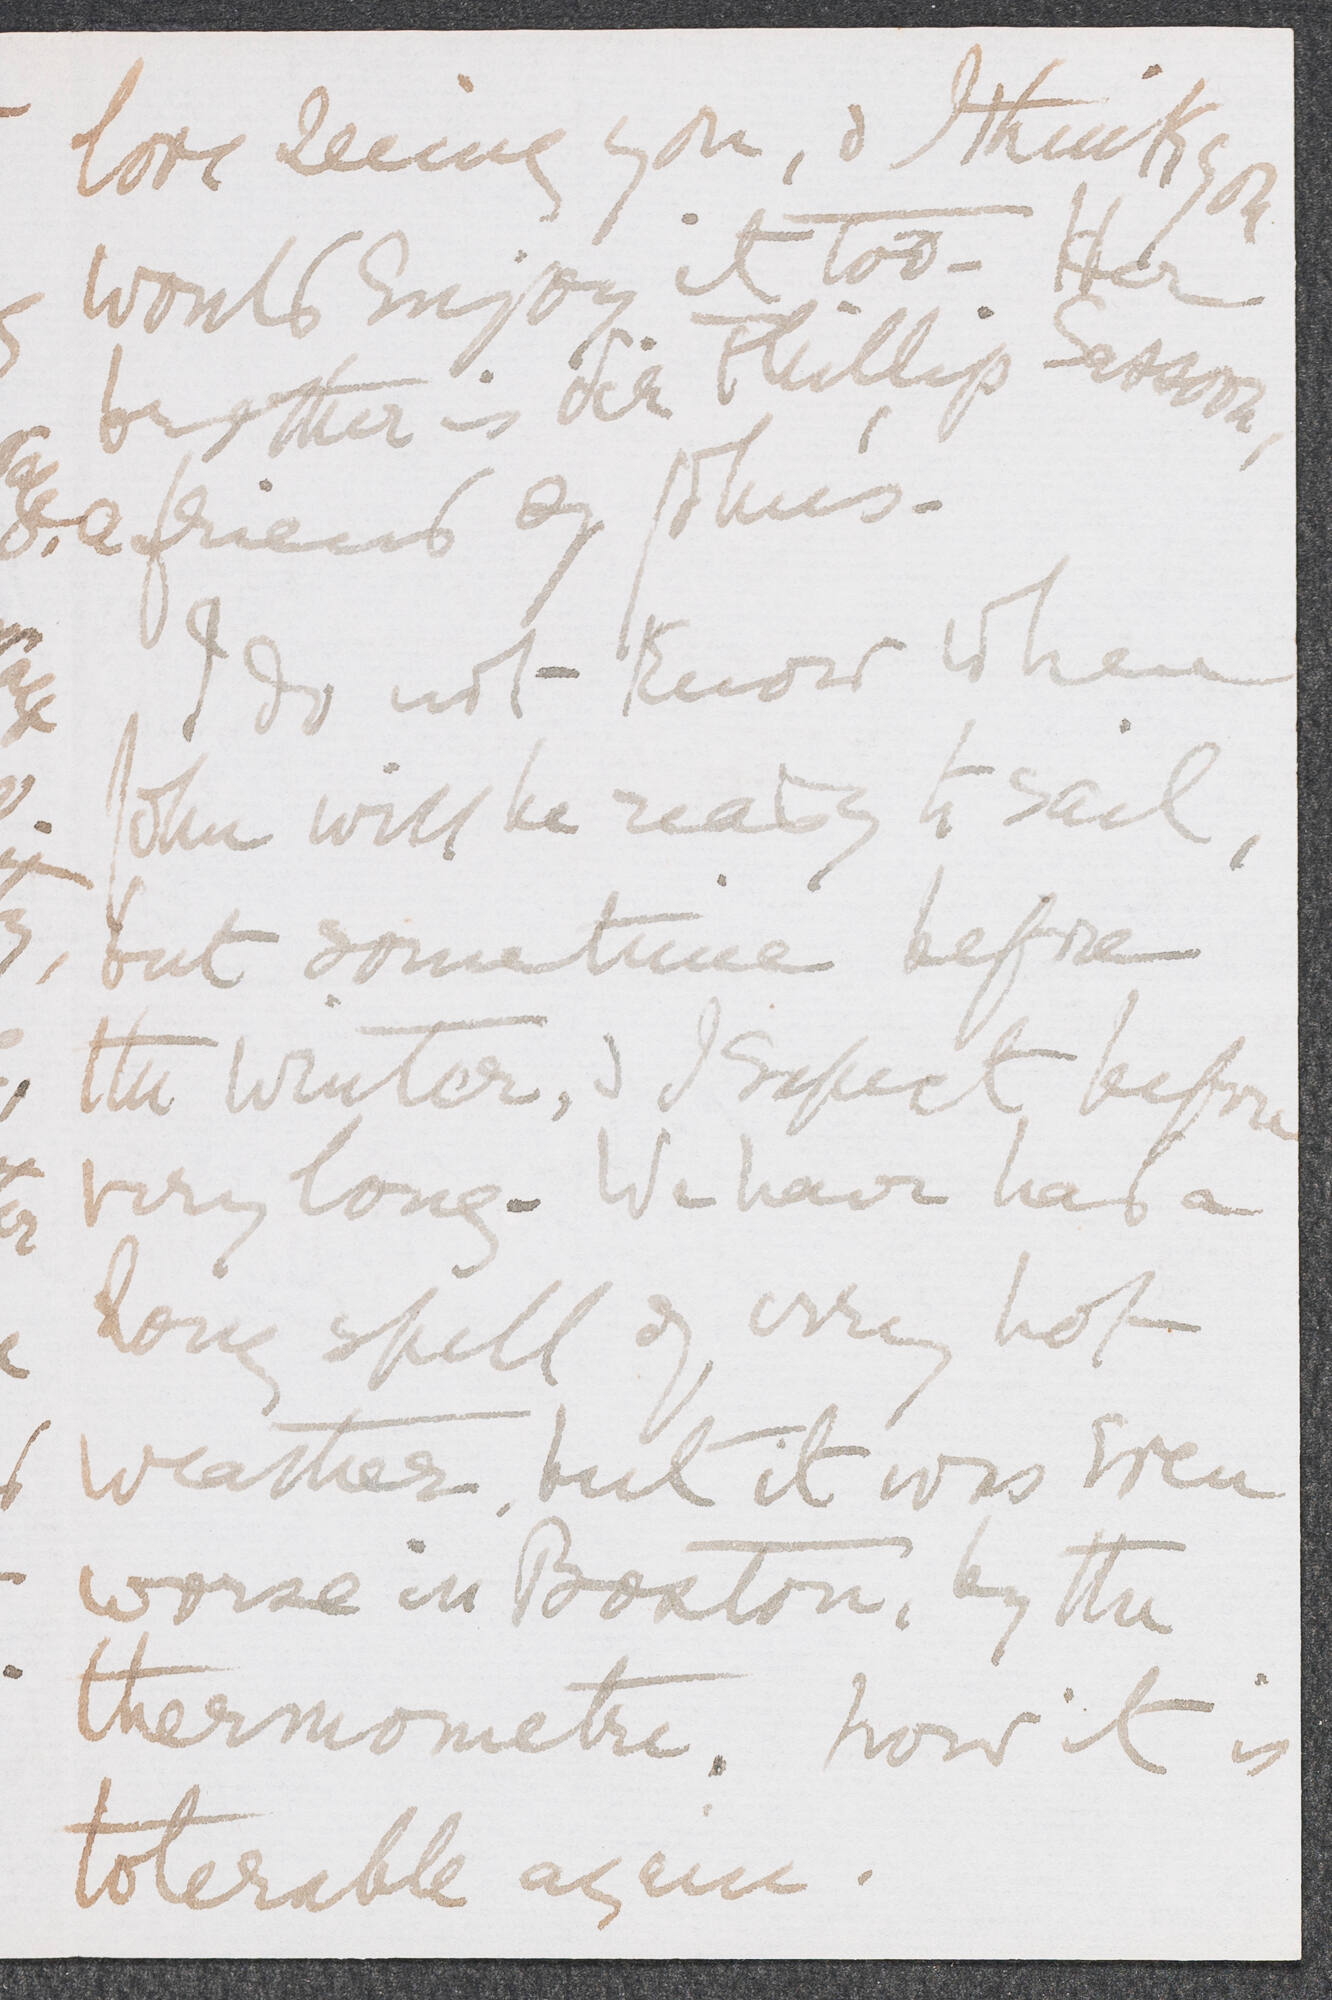 love seeing you, & I think you
would enjoy it too - Her
brother is Sir Phillip Sassoon,
a friend of John's.
I do not know when
John will be ready to sail,
but sometime before
the winter, & I expect before
very long - We have had a
long spell of very hot
weather, but it was even
worse in Boston, by the
thermometre. Now it is
tolerable again.